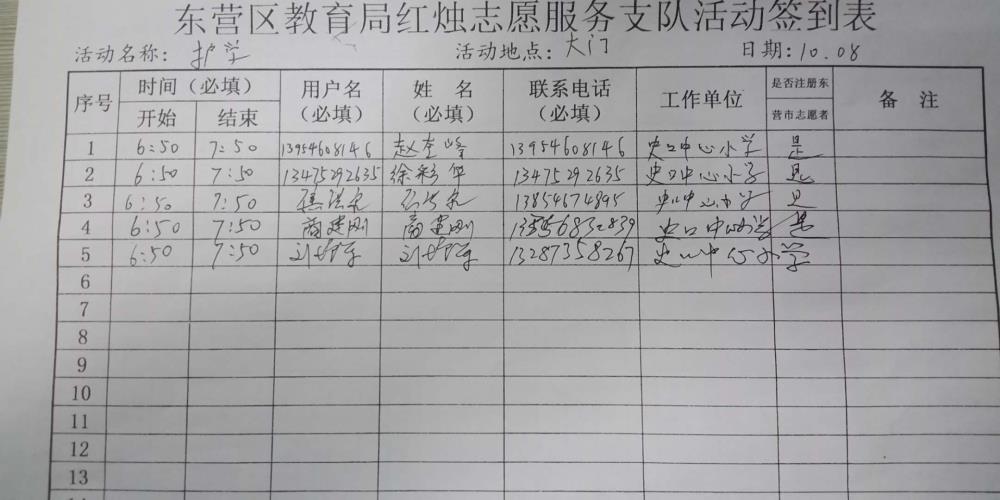 东营区教育局红烛志愿服务支队活动签到表
活动名称：护学 活动地点：大门 日期：10.08
序号 时间（必填） 用户名（必填） 姓名（必填） 联系电话（必填） 工作单位 是否注册东营市志愿者 备注
开始 结束
1 6:50 7:50 13954608146 赵奎峰 13954608146 史口中心小学 是
2 6:50 7:50 13475292635 徐彩华 13475292635 史口中心小学 是
3 6:50 7:50 13854674895 史口中心小学 是
4 6:50 7:50 商建刚 商建刚 史口中心小学 是
5 6:50 7:50 13287358267 史口中心小学
6
7
8
9
10
11
12
13